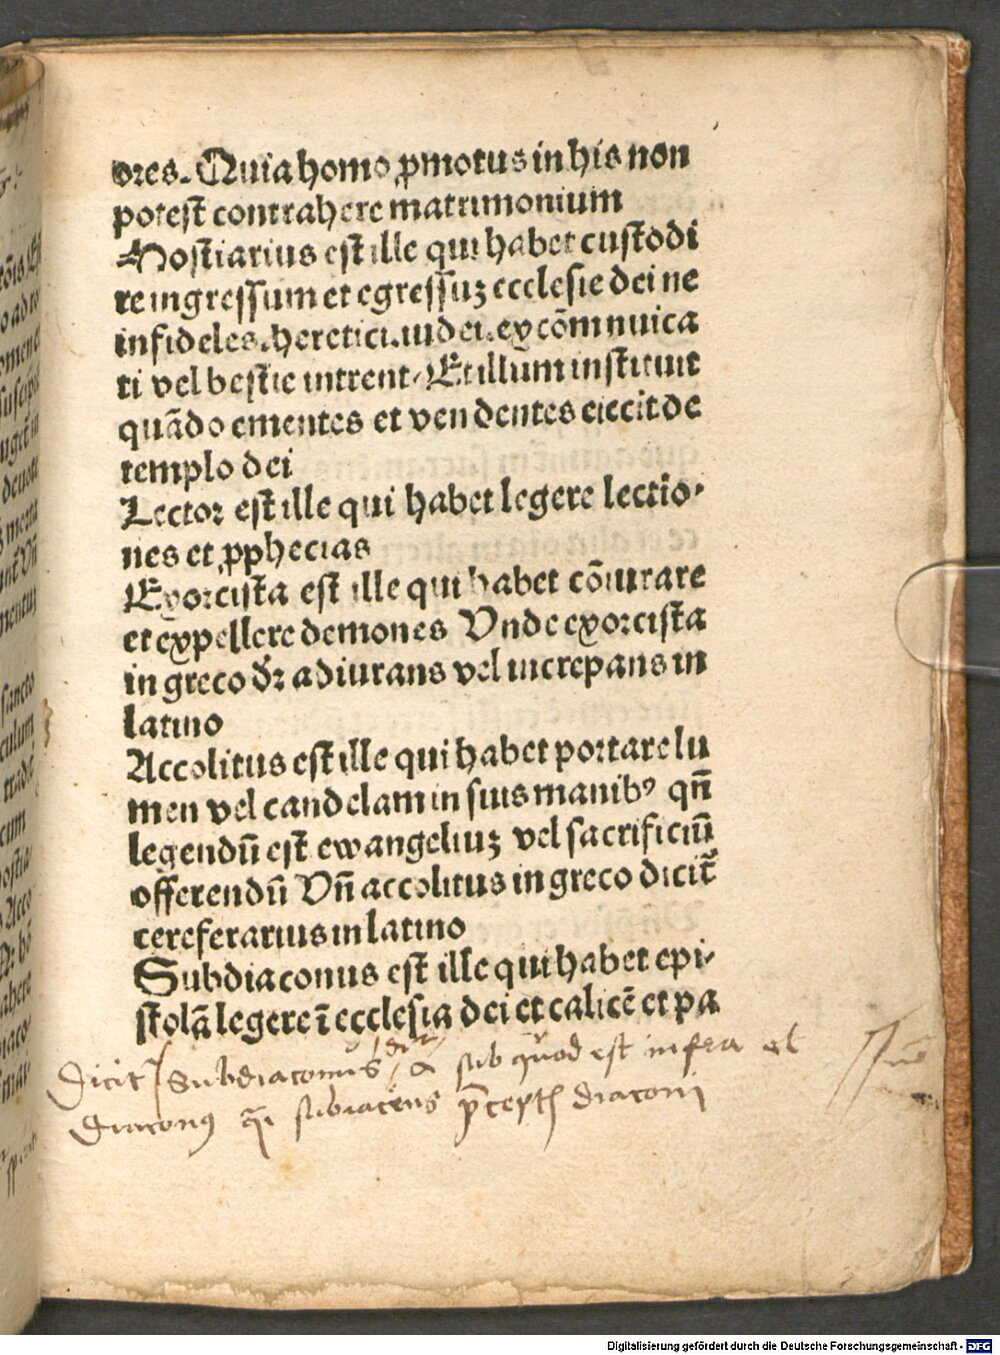 dres. Quia homo ꝓmotus in his non
potest contrahere matrimonium
Hostiarius est ille qui habet custodi
re ingressum et egressuꝫ ecclesie dei ne
infideles. heretici. iudei. excōmnuica
ti vel bestie intrent. Et illum instituit
quādo ementes et vendentes eiecit de
templo dei
Lector est ille qui habet legere lectio-
nes et ꝓphecias
Exorcista est ille qui habet cōiurare
et expellere demones Vnde exorcista
in greco dꝛ adiurans vel increpans in
latino
Accolitus est ille qui habet portare lu
men vel candelam in suis manibꝰ qn̄
legendū est ewangeliuꝫ vel sacrificiū
offerendū Vn̄ accolitus in greco dicit᷑
cereferarius in latino
Subdiaconus est ille qui habet epi-
stolā legere ī ecclesia dei et calicē et pa
Dicit᷑ Subdiaconus a sub quod est infra et
diaconꝰ qͣi subiacens p̄ceptis diaconi
Digitalisierung gefördert durch die Deutsche Forschungsgemeinschaft - DFG